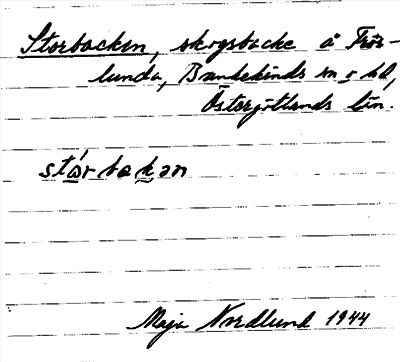 Storbacken, skogsbacke å Frös-
lunda, Bankekinds sn o hd,
Östergötlands län.
stórbakən
Maja Nordlund 1944